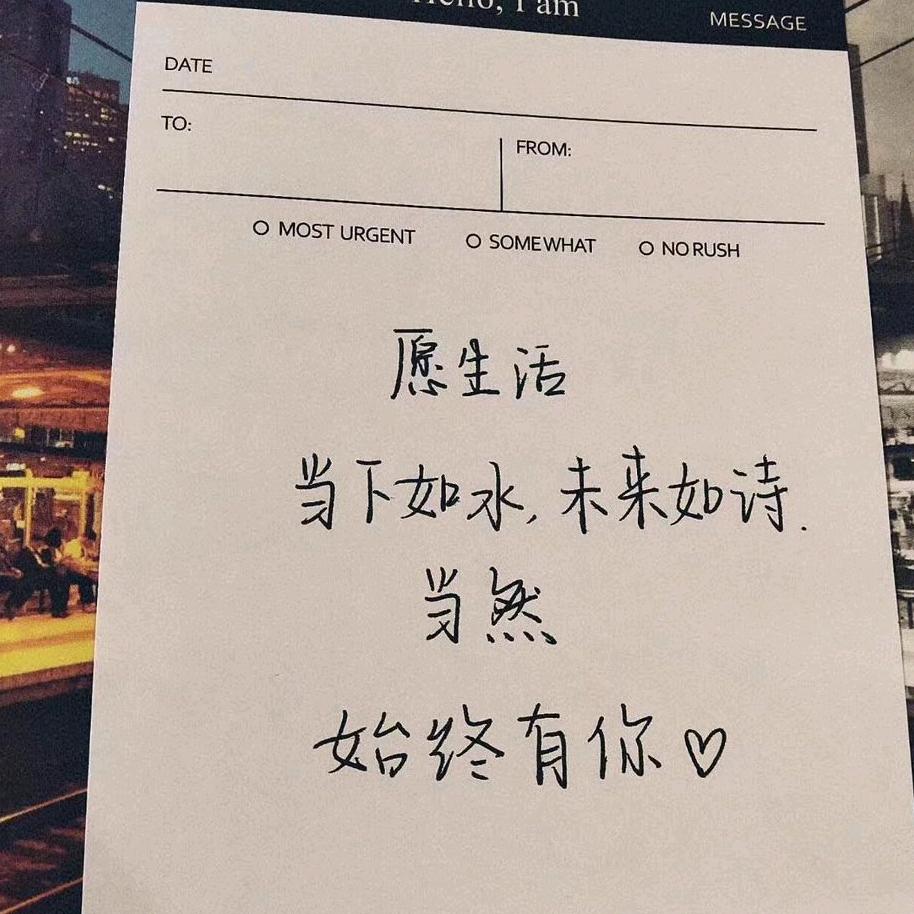 Hello, I am
MESSAGE
DATE
TO:
FROM:
MOST URGENT
SOMEWHAT
NO RUSH
愿生活
当下如水,未来如诗.
当然
始终有你♡